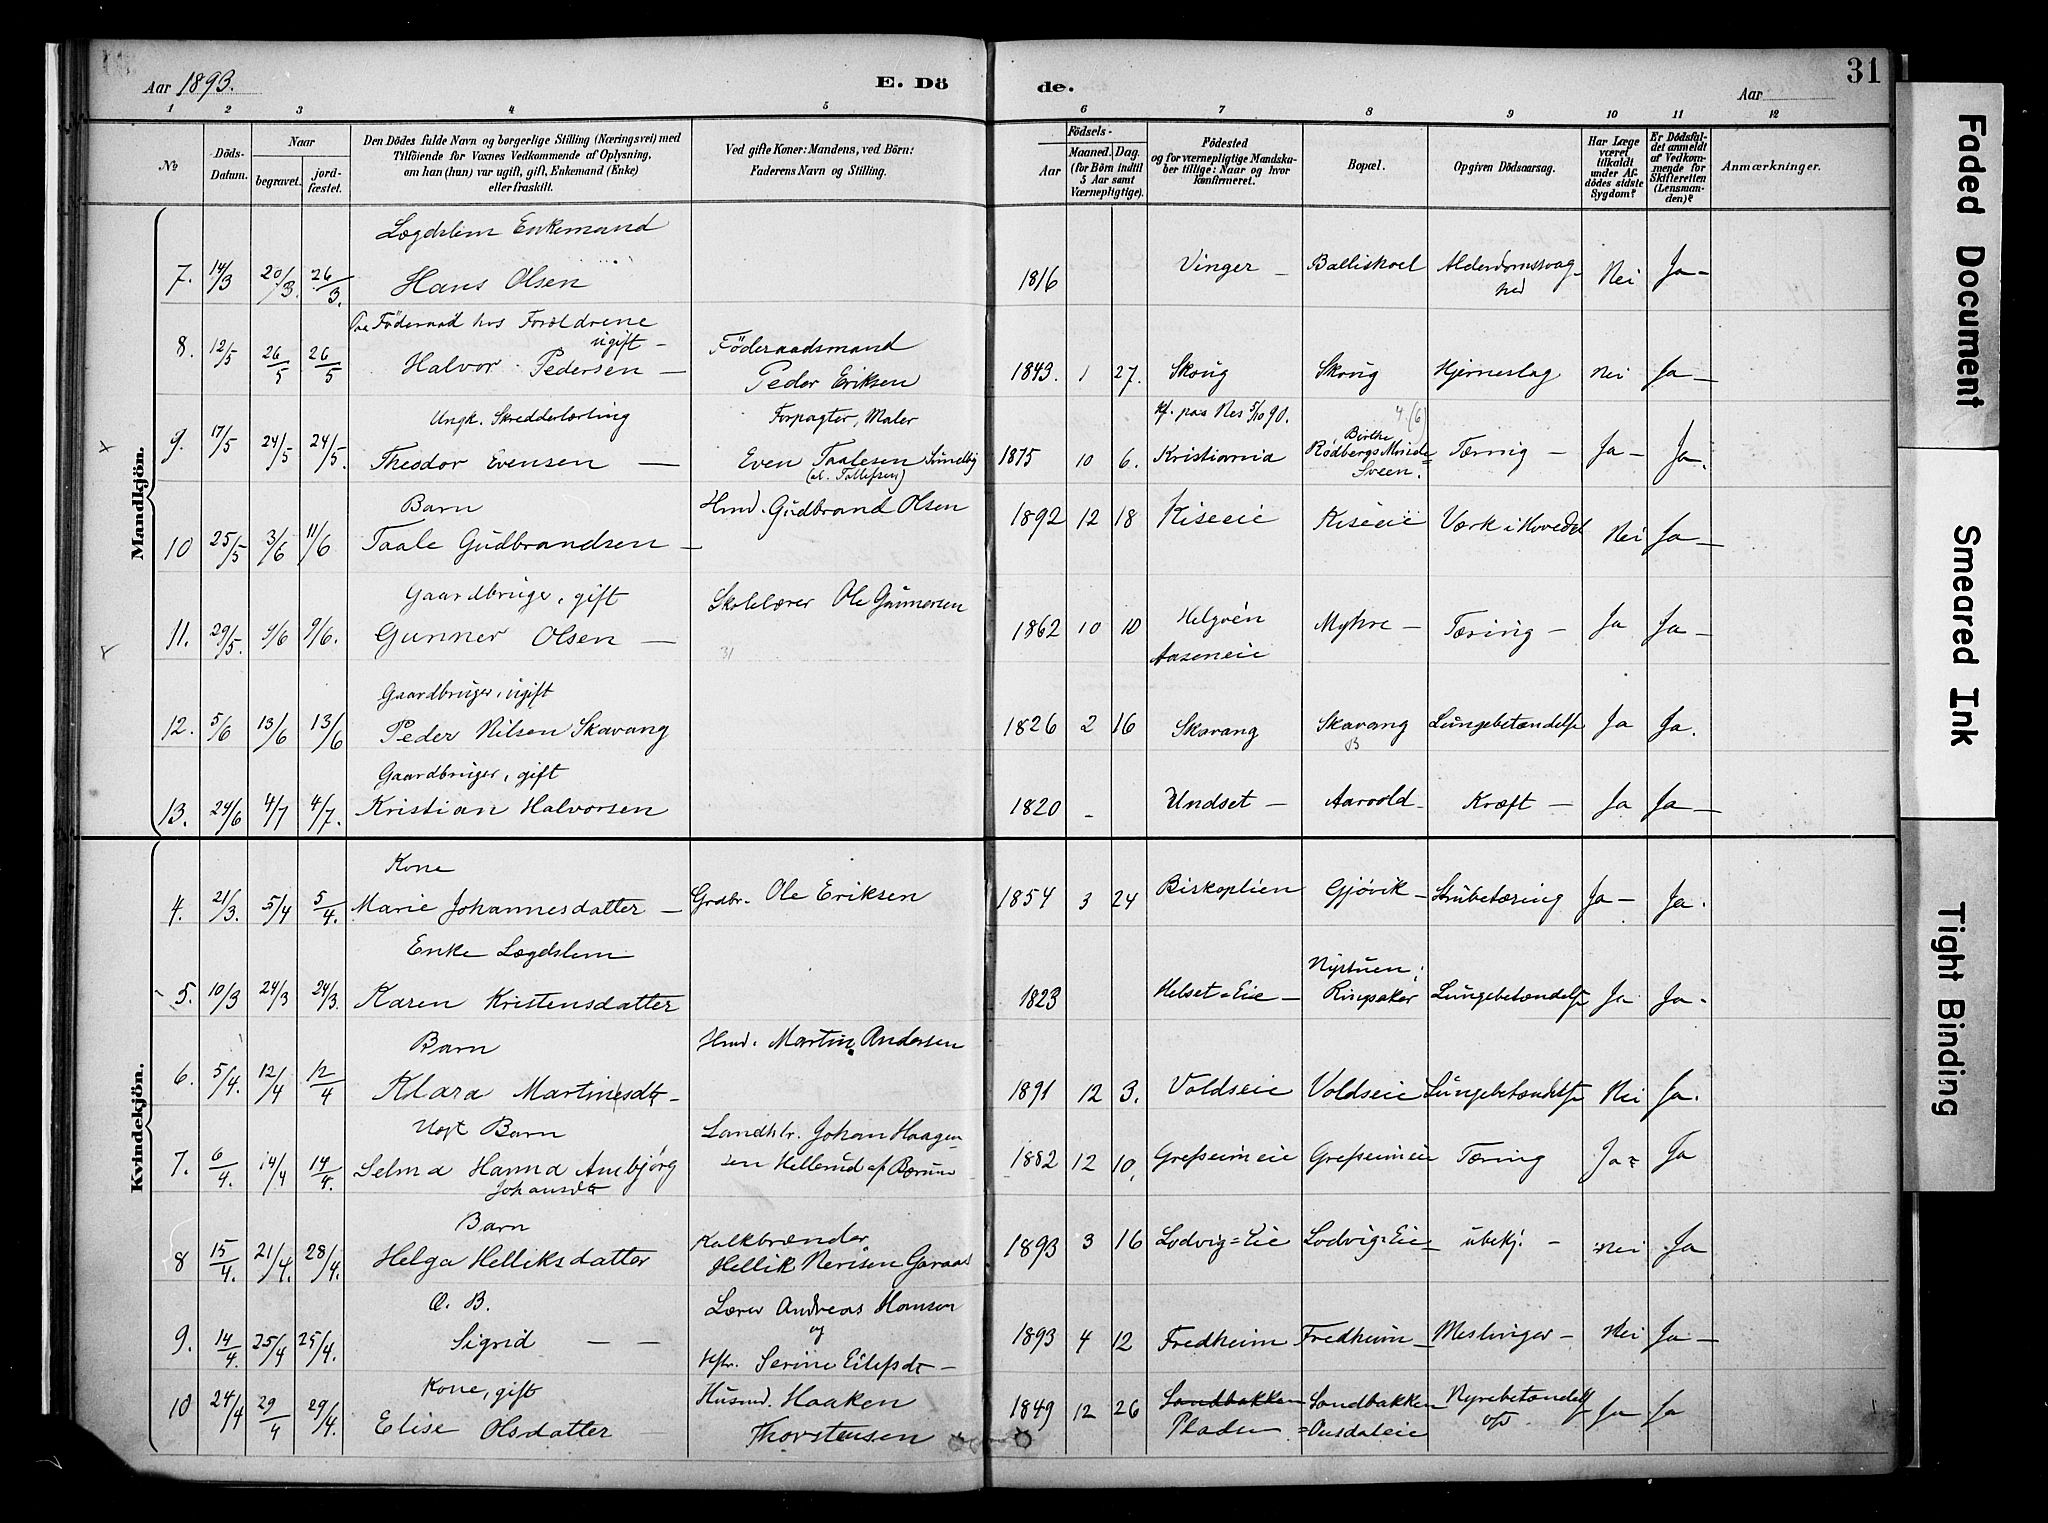 Aar 1893.
E. Dö
de.
Aar
31
1 2 3 4 5 6 7 8 9 10 11 12
No
Döds-Datum.
Naar
begravet.
jord-fæstet.
Den Dödes fulde Navn og borgerlige Stilling (Næringsvei) med
Tilföiende for Voxnes Vedkommende af Oplysning,
om han (hun) var ugift, gift, Enkemand (Enke)
eller fraskilt.
Ved gifte Koner: Mandens, ved Börn:
Faderens Navn og Stilling.
Födsels-
Aar
Maaned. Dag.
(for Börn indtil
5 Aar samt
Værnepligtige).
Födested
og for værnepligtige Mandska-
ber tillige: Naar og hvor
konfirmeret.
Bopæl.
Opgiven Dödsaarsag.
Har Læge
været
tilkaldt
under Af-
dödes sidste
Sygdom?
Er Dödsfal-
det anmeldt
af Vedkom-
mende for
Skifteretten
(Lensman-
den)?
Anmærkninger.
Mandkjön.
Lægdslem Enkemand
7. 14/3 20/3 26/3. Hans Olsen 1816 Vinger – Balliskoel Alderdomssvag-
hed Nei Ja –
Paa Föderaad hos Forældrene
ugift –
8. 12/5 26/5 26/5 Halvor Pedersen – Föderaadsmand
Peder Eriksen 1843. 1 27. Skoug Skoug Hjerneslag Nei Ja –
Ungk. Skredderlærling Forpagter, Maler kf. paa Nes 5/10 90. 4 (6)
9. 17/5 24/5 24/5. Theodor Evensen – Even Taalesen Sundby
(al. Tollefsen) 1875 10 6. Kristiania Birthe
Rödbergs Minde=
Sveen. Tæring – Ja – Ja.
Barn Hmd. Gudbrand Olsen
10 25/5 3/6 11/6 Taale Gudbrandsen – 1892 12 18 Kiseeie Kiseeie Værk i Hovedet Nei Ja –
Gaardbruger, gift Skolelærer Ole Gunnersen
11. 29/5. 9/6 9/6. Gunner Olsen – 31 1862 10 10 Helgøen
Aaseneie Myhre – Tæring – Ja Ja –
Gaardbruger, ugift
12. 5/6 13/6 13/6 Peder Nilsen Skavang 1826 2 16 Skavang Skavang Lungebetændelse Ja Ja.
Gaardbruger, gift
13. 24/6 4/7 4/7. Kristian Halvorsen 1820 – Undset – Aarvold – Kræft – Ja Ja –
Kvindekjön.
Kone
4. 21/3. 5/4 5/4. Marie Johannesdatter – Grdbr. Ole Eriksen 1854 3 24 Biskoplien Gjövik – Strubetæring Ja – Ja.
Enke Lægdslem
5. 10/3 24/3 24/3. Karen Kristensdatter 1823 Helset=Eie – Nystuen;
Ringsaker Lungebetændelse Ja Ja.
Barn Hmd. Martin Andersen
6. 5/4. 12/4 12/4 Klara Martinsdt – 1891 12 3. Voldseie Voldseie Lungebetændelse Nei Ja.
Uegt Barn Landhdlr. Johan Haagen-
7. 6/4. 14/4 14/4. Selma Hanna Ambjörg
Johansdtr sen Hellerud af Bærum 1882 12 10. Grefseimeie Grefseimeie Tæring Ja = Ja
Barn Kalkbrænder
8 15/4. 21/4. 28/4. Helga Helliksdatter Hellik Nerisen Garaas 1893 3 16 Lodvig=Eie Lodvig=Eie – ubekj. – Nei Ja
O. B. Lærer Andreas Hansen
og
9. 14/4. 25/4 25/4. Sigrid – – Hstr. Serine Eilefsdt – 1893 4 12 Fredheim Fredheim – Meslinger – Nei Ja –
Kone, gift Husmd. Haaken
10 24/4 29/4 29/4. Elise Olsdatter – Thorstensen 1849 12 26 Sandbakken
Pladsen Sandbakken
=Ousdaleie Nyrebetændelse Ja Ja
Faded Document
Smeared Ink
Tight Binding